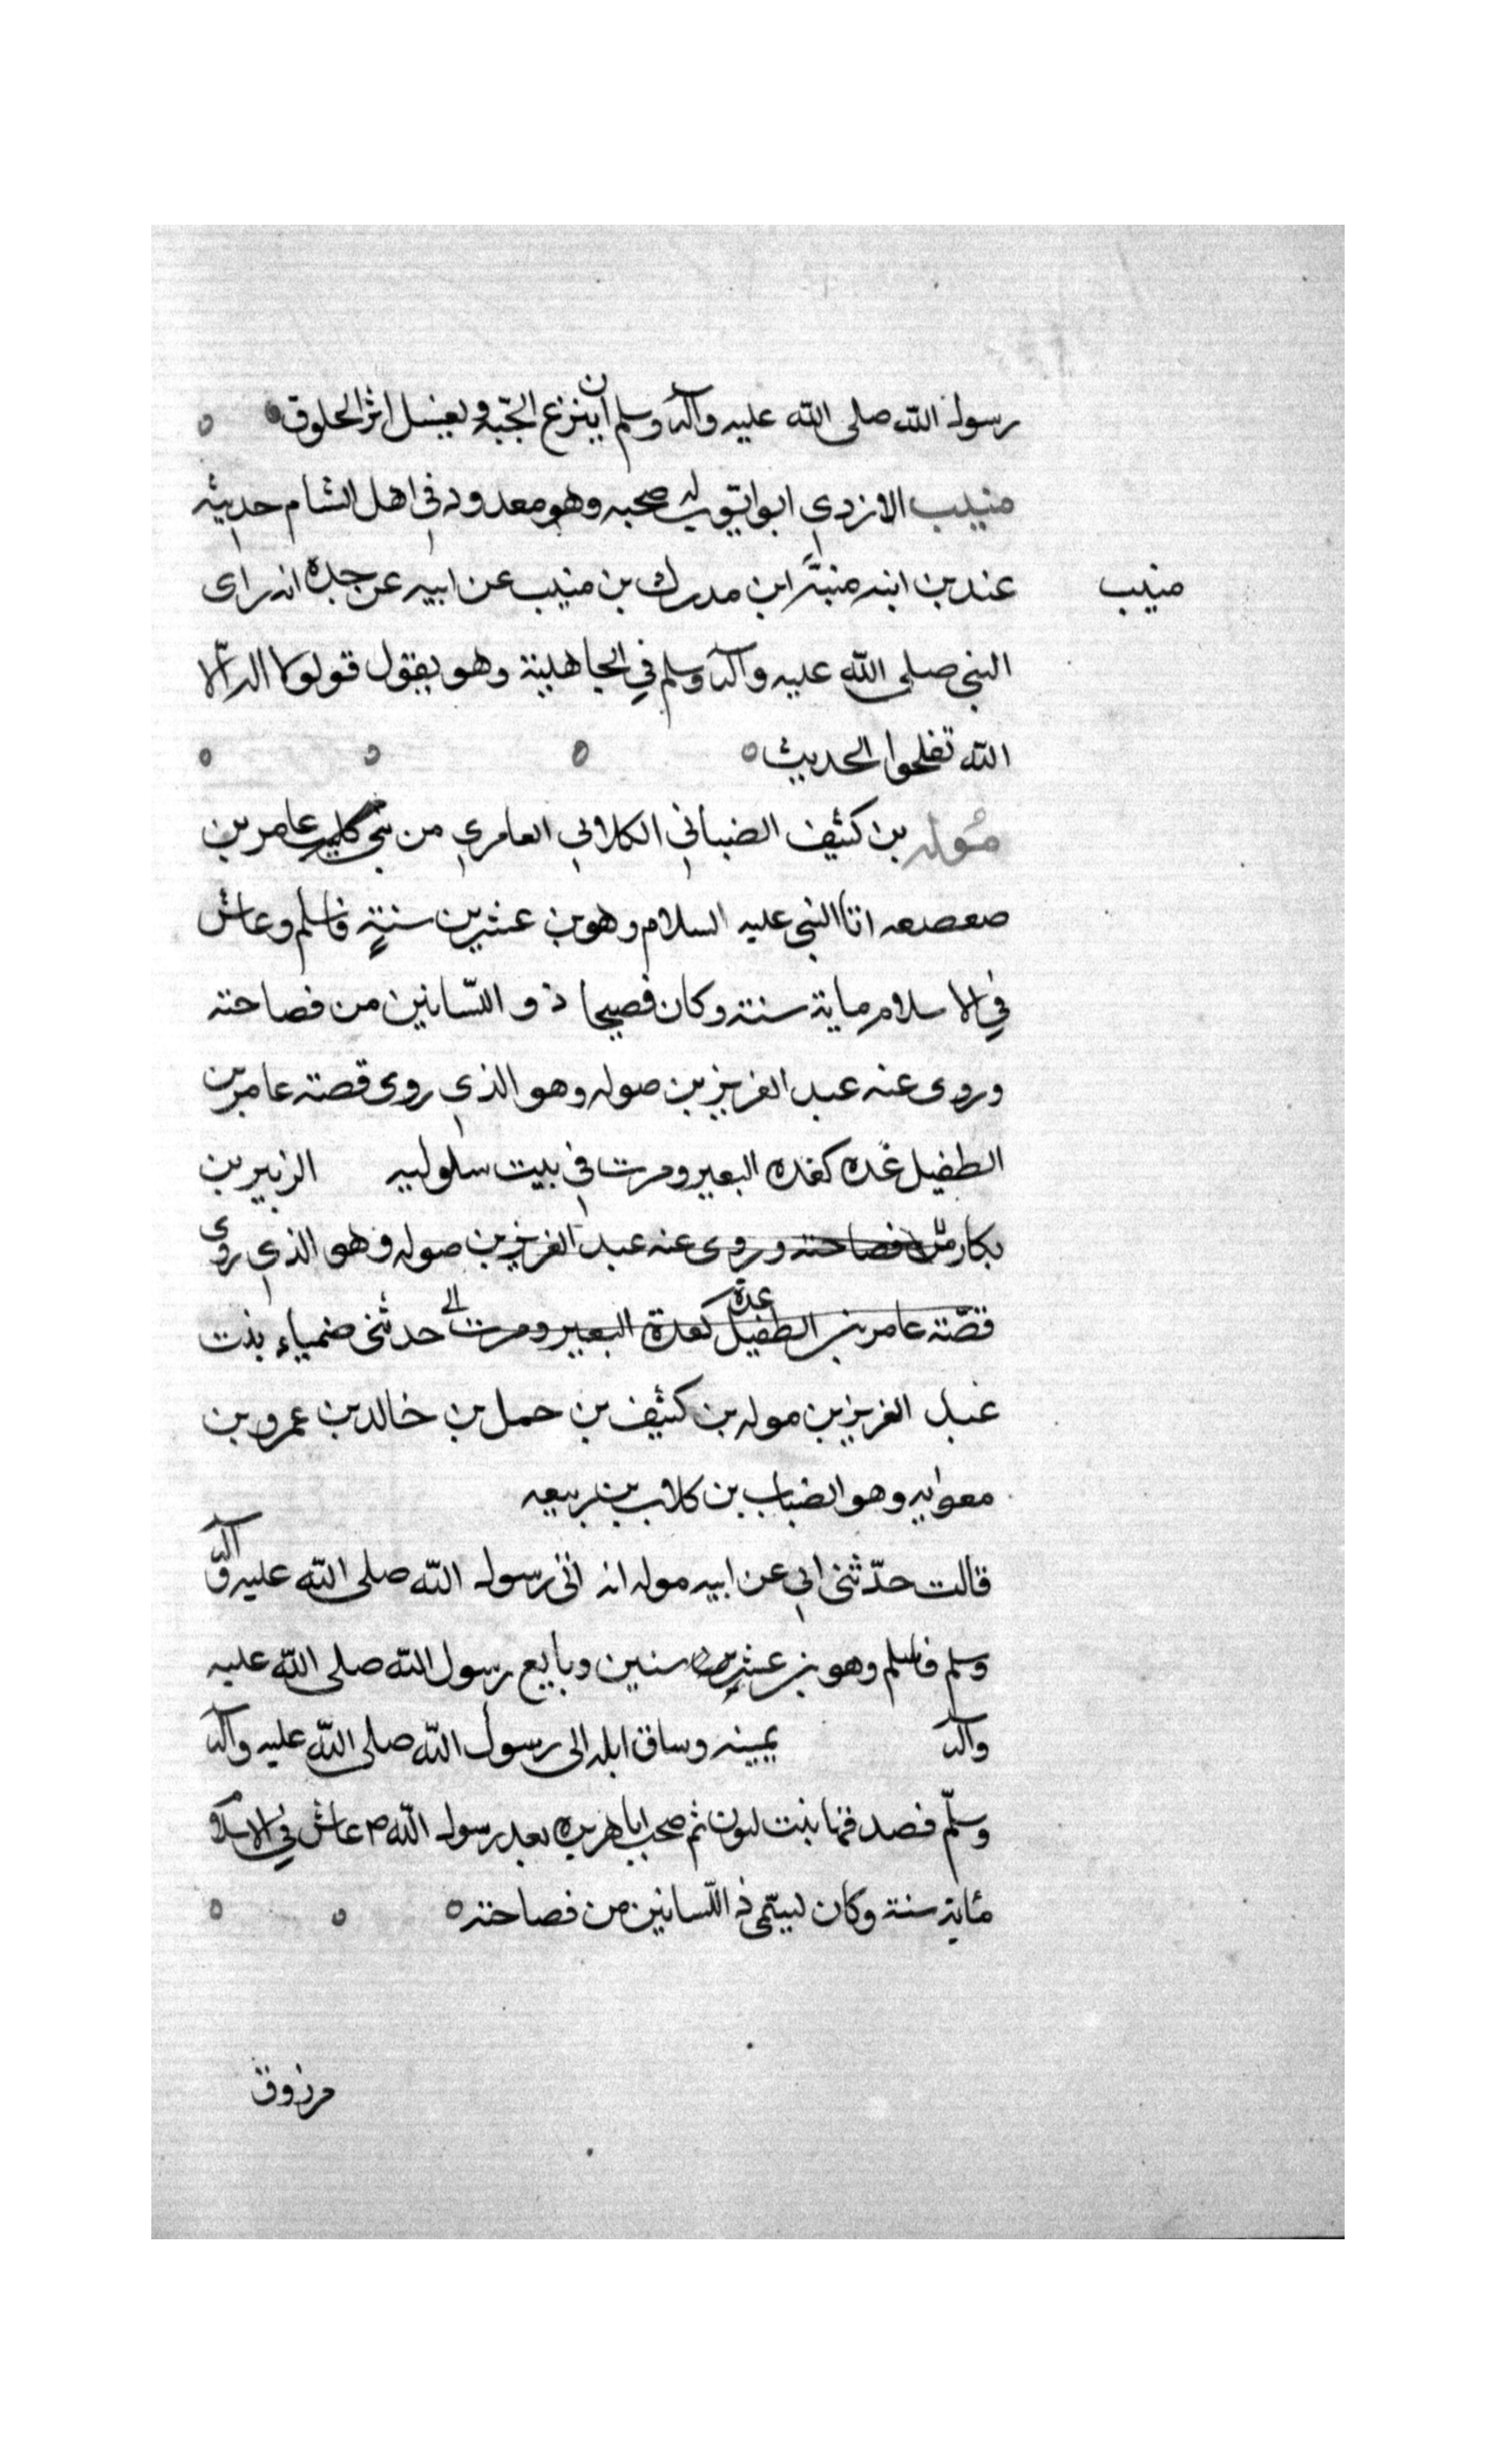 رسول الله صلى الله عليه وآله وسلم ان ينزع الجبّة ويغسل اثر الخلوق
منيب الازدي ابو ايّوب له صحبه وهو معدود في اهل الشام حديثه
منيب
عند بن ابنه منبّه ابن مدرك بن منيب عن ابيه عن جده انه راى
النبي صلى الله عليه وآله وسلم في الجاهلية وهو يقول قولوا لا اله الّا
الله تفلحوا الحديث
موله بن كثيف الضبابي الكلابي العامري من بني عامر بن
صعصعه اتا النبي عليه السلام وهو بن عشرين سنةٍ فاسلم وعاش
في الاسلام ماية سنة وكان فصيحا ذو اللّسانين من فصاحته
وروى عنه عبد العزيز بن موله وهو الذي روى قصته عامر بن
الطفيل غده كغده البعير وموت في بيت سلوليه الزبير بن
بكار من فصاحته وروى عنه عبد العزيز بن موله وهو الذي روى
قصّته عامر بن الطفيل غدة كغدة البعير وموت حدثني ضمياء بنت
عبد العزيز بن موله بن كثيف بن حمل بن خالد بن عمرو بن
معوايه وهو الضباب بن كلاب بن ربيعه
قالت حدّثني ابي عن ابيه موله انه اتى رسول الله صلى الله عليه وآله
وسلم فاسلم وهو بن عشرين سنين وبايع رسول الله صلى الله عليه
وآله يمينه وساق ابله الى رسول الله صلى الله عليه وآله
وسلّم فصدقها بنت لبون ثم صحب ابا هريره بعد رسول الله ص عاش في الاسلام
مئاية سنة وكان ليسمّى ذ اللّسانين من فصاحته
مرزوق